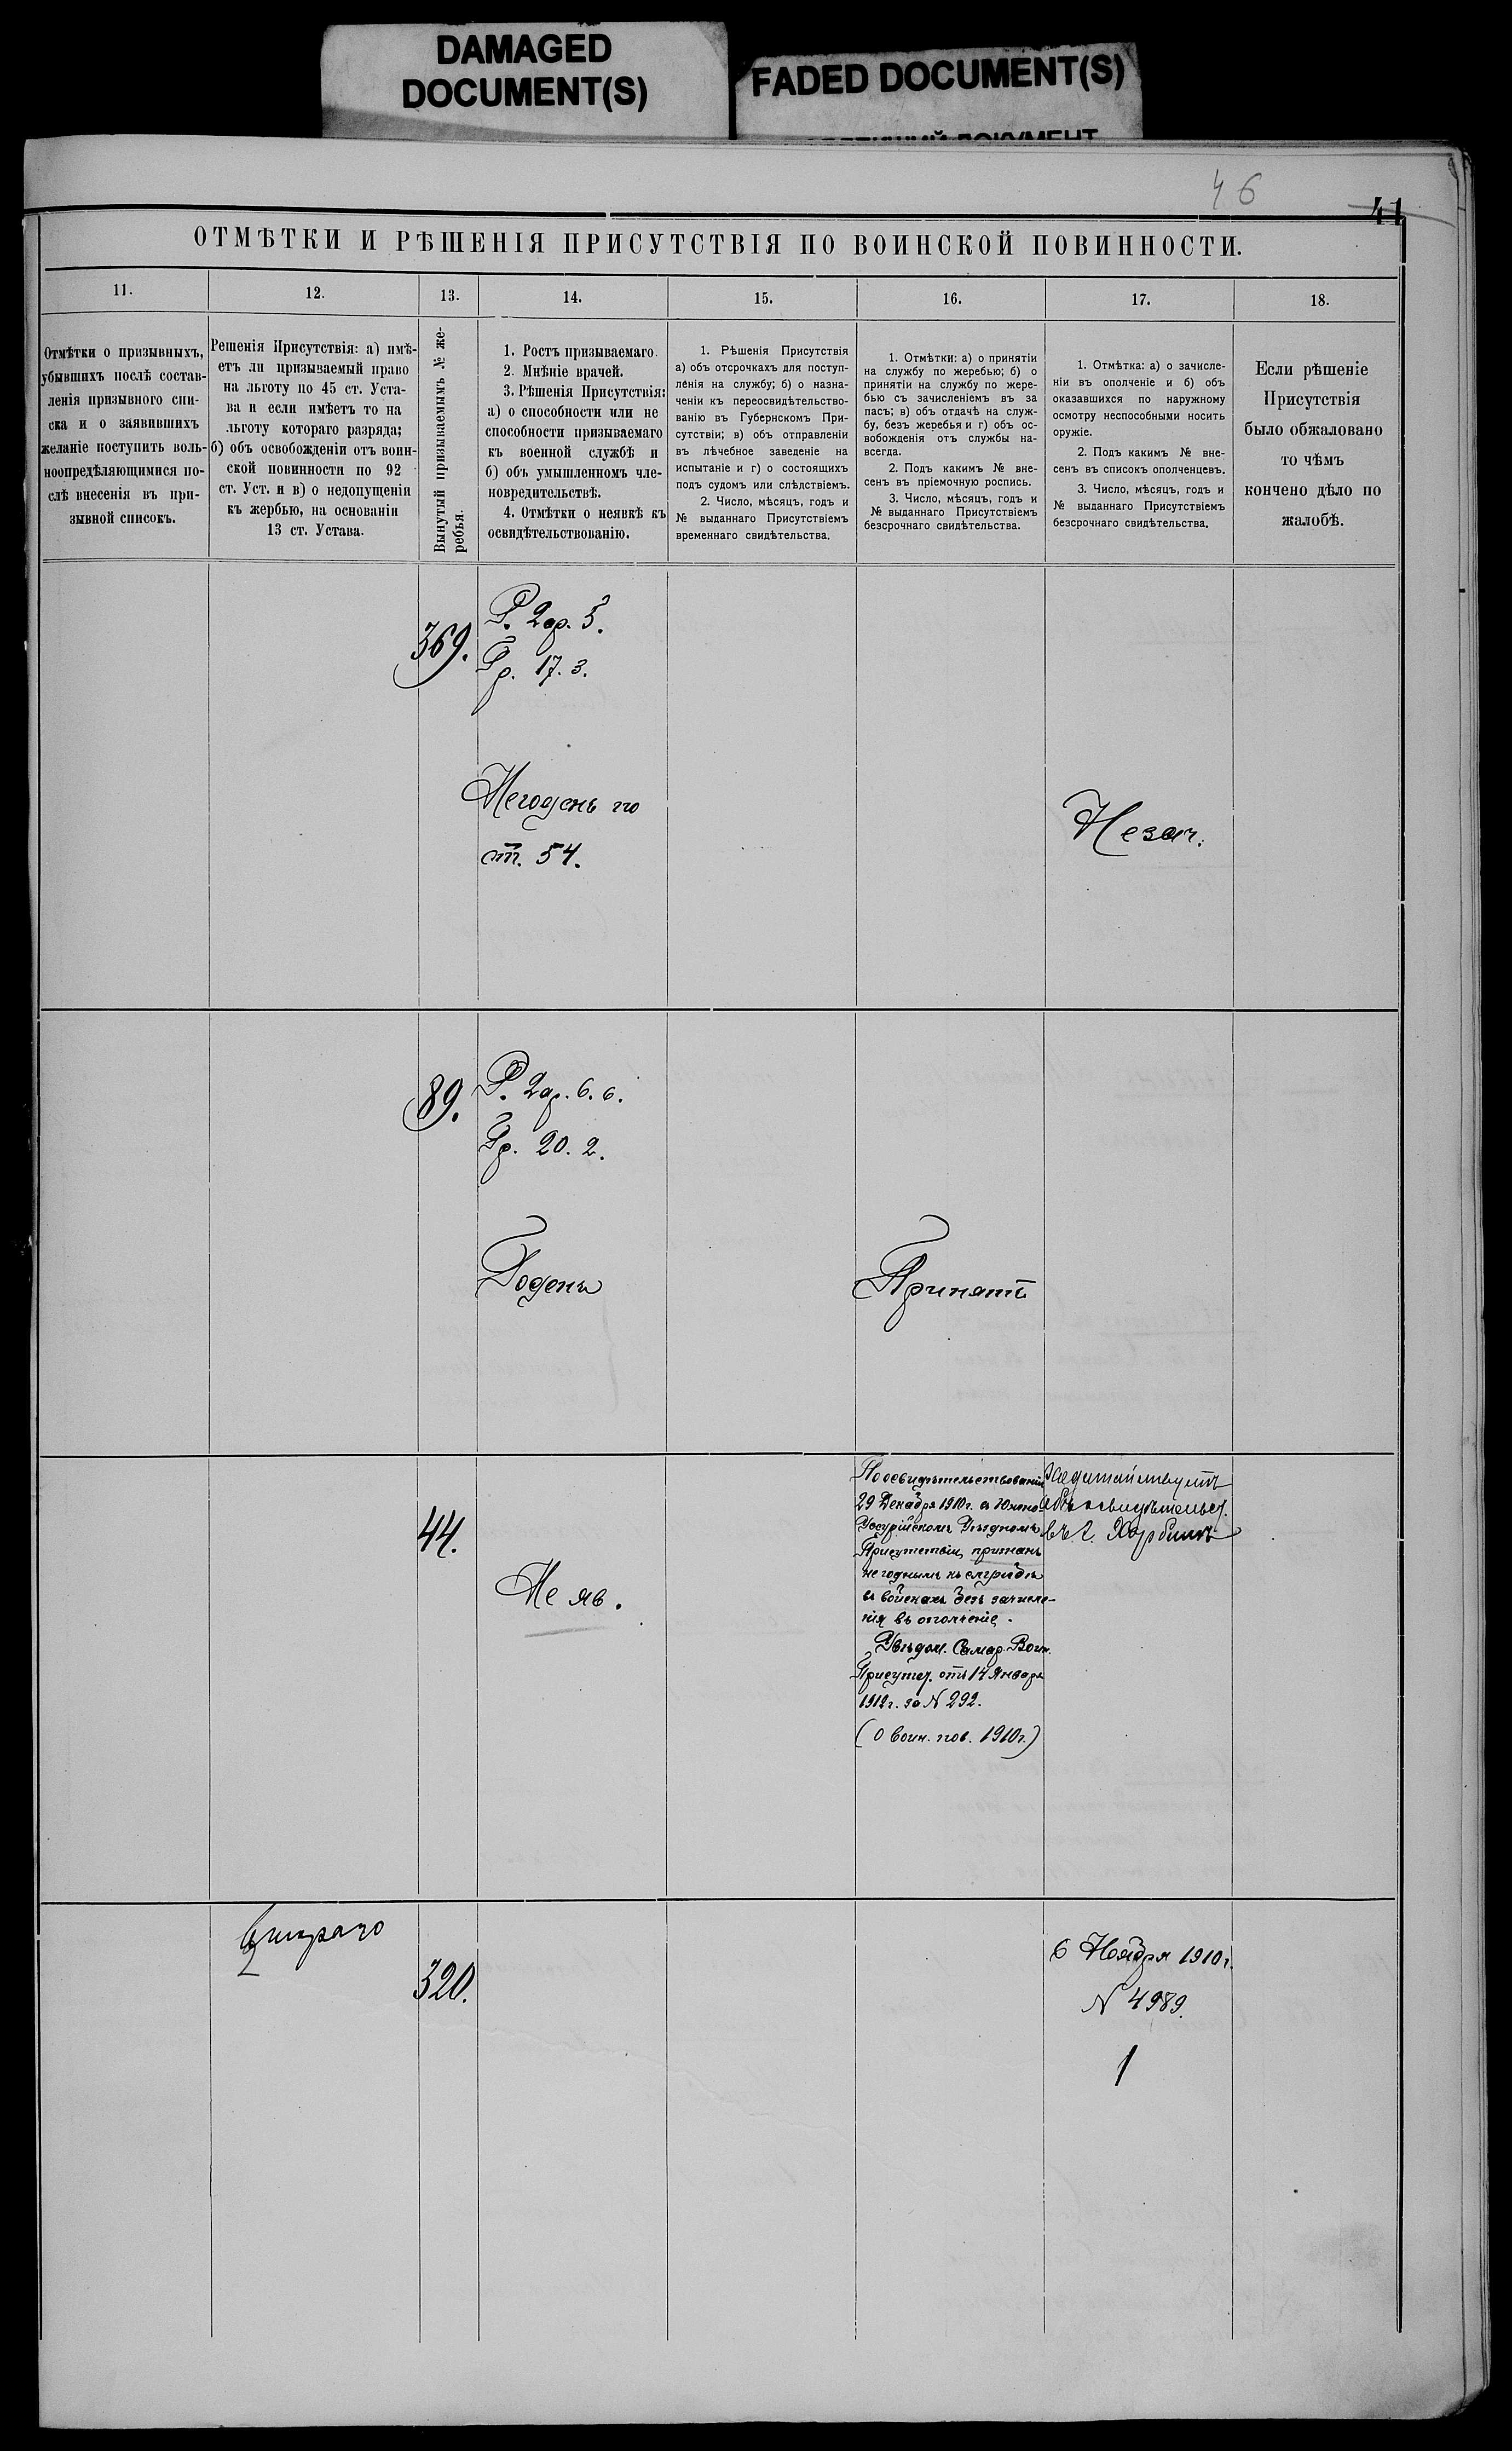 DAMAGED
DOCUMENT(S)
FADED DOCUMENT(S)
46
41
ОТМѢТКИ И РѢШЕНІЯ ПРИСУТСТВІЯ ПО ВОИНСКОЙ ПОВИННОСТИ.
11.
12.
13.
14.
15.
16.
17.
18.
Отмѣтки о призывныхъ,
убывшихъ послѣ состав-
ленія призывного спи-
ска и о заявившихъ
желаніе поступить воль-
ноопредѣляющимися по-
слѣ внесенія въ при-
зывной списокъ.
Решенія Присутствія: а) имѣ-
етъ ли призываемый право
на льготу по 45 ст. Уста-
ва и если имѣетъ то на
льготу котораго разряда;
б) объ освобожденіи отъ воин-
ской повинности по 92
ст. Уст. и в) о недопущеніи
къ жербью, на основаніи
13 ст. Устава.
Вынутый призываемымъ № же-
ребья.
1. Ростъ призываемаго.
2. Мнѣніе врачей.
3. Рѣшенія Присутствія:
а) о способности или не
способности призываемаго
къ военной службѣ и
б) объ умышленномъ чле-
новредительствѣ.
4. Отмѣтки о неявкѣ къ
освидѣтельствованію.
1. Рѣшенія Присутствія
а) объ отсрочкахъ для поступ-
ленія на службу; б) о назна-
ченіи къ переосвидѣтельство-
ванію въ Губернскомъ При-
сутствіи; в) объ отправленіи
въ лѣчебное заведеніе на
испытаніе и г) о состоящихъ
подъ судомъ или слѣдствіемъ.
2. Число, мѣсяцъ, годъ и
№ выданнаго Присутствіемъ
временнаго свидѣтельства.
1. Отмѣтки: а) о принятіи
на службу по жеребью; б) о
принятіи на службу по жере-
бью съ зачисленіемъ въ за
пасъ; в) объ отдачѣ на служ-
бу, безъ жеребья и г) объ ос-
вобожденія отъ службы на-
всегда.
2. Подъ какимъ № вне-
сенъ въ пріемочную роспись.
3. Число, мѣсяцъ, годъ и
№ выданнаго Присутствіемъ
безсрочнаго свидѣтельства.
1. Отмѣтка: а) о зачисле-
ніи въ ополченіе и б) объ
оказавшихся по наружному
осмотру неспособными носить
оружіе.
2. Подъ какимъ № вне-
сенъ въ списокъ ополченцевъ.
3. Число, мѣсяцъ, годъ и
№ выданнаго Присутствіемъ
безсрочнаго свидѣтельства.
Если рѣшеніе
Присутствія
было обжаловано
то чѣмъ
кончено дѣло по
жалобѣ.
369.
Р. 2ар. 5.
Гр. 17. 3.
Негоденъ по
ст. 54.
Незач.
89.
Р. 2ар. 6. 6.
Гр. 20. 2.
Годенъ
Принятъ
44.
Не яв.
По освидѣтельствованіи
29 Декабря 1910г. въ Южно-
Уссурійскомъ Уѣздномъ
Присутствіи, признанъ
негоднымъ къ службѣ
въ войскахъ безъ зачисле-
нія въ ополченіе.
Увѣдом. Самар. Воин.
Присутст. отъ 14 Января
1912г. за № 292.
(О воин. пов. 1910г.)
Ходатайствуетъ
объ освидѣтельст.
въ г. Харбинѣ
320.
6 Ноября 1910г.
№ 4989.
1